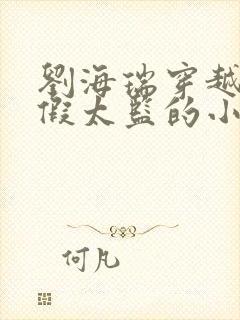 劉海瑞穿越
假太監的小
何凡